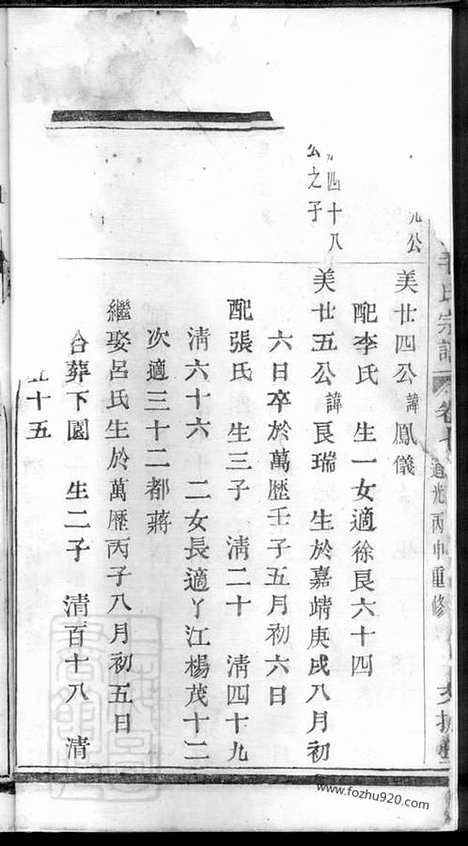 氏宗譜 卷 道光丙申重修
公
美廿四公諱鳳儀
配李氏 生一女適徐艮六十四
四十八
公之子
美廿五公諱艮瑞 生於嘉靖庚戌八月初
六日卒於萬歷壬子五月初六日
配張氏 生三子 淸二十 淸四十九
淸六十六 二女長適丫江楊茂十二
次適三十二都蔣
繼娶呂氏生於萬歷丙子八月初五日
合葬下園 生二子 淸百十八 淸
五十五
www.fozhu920.com